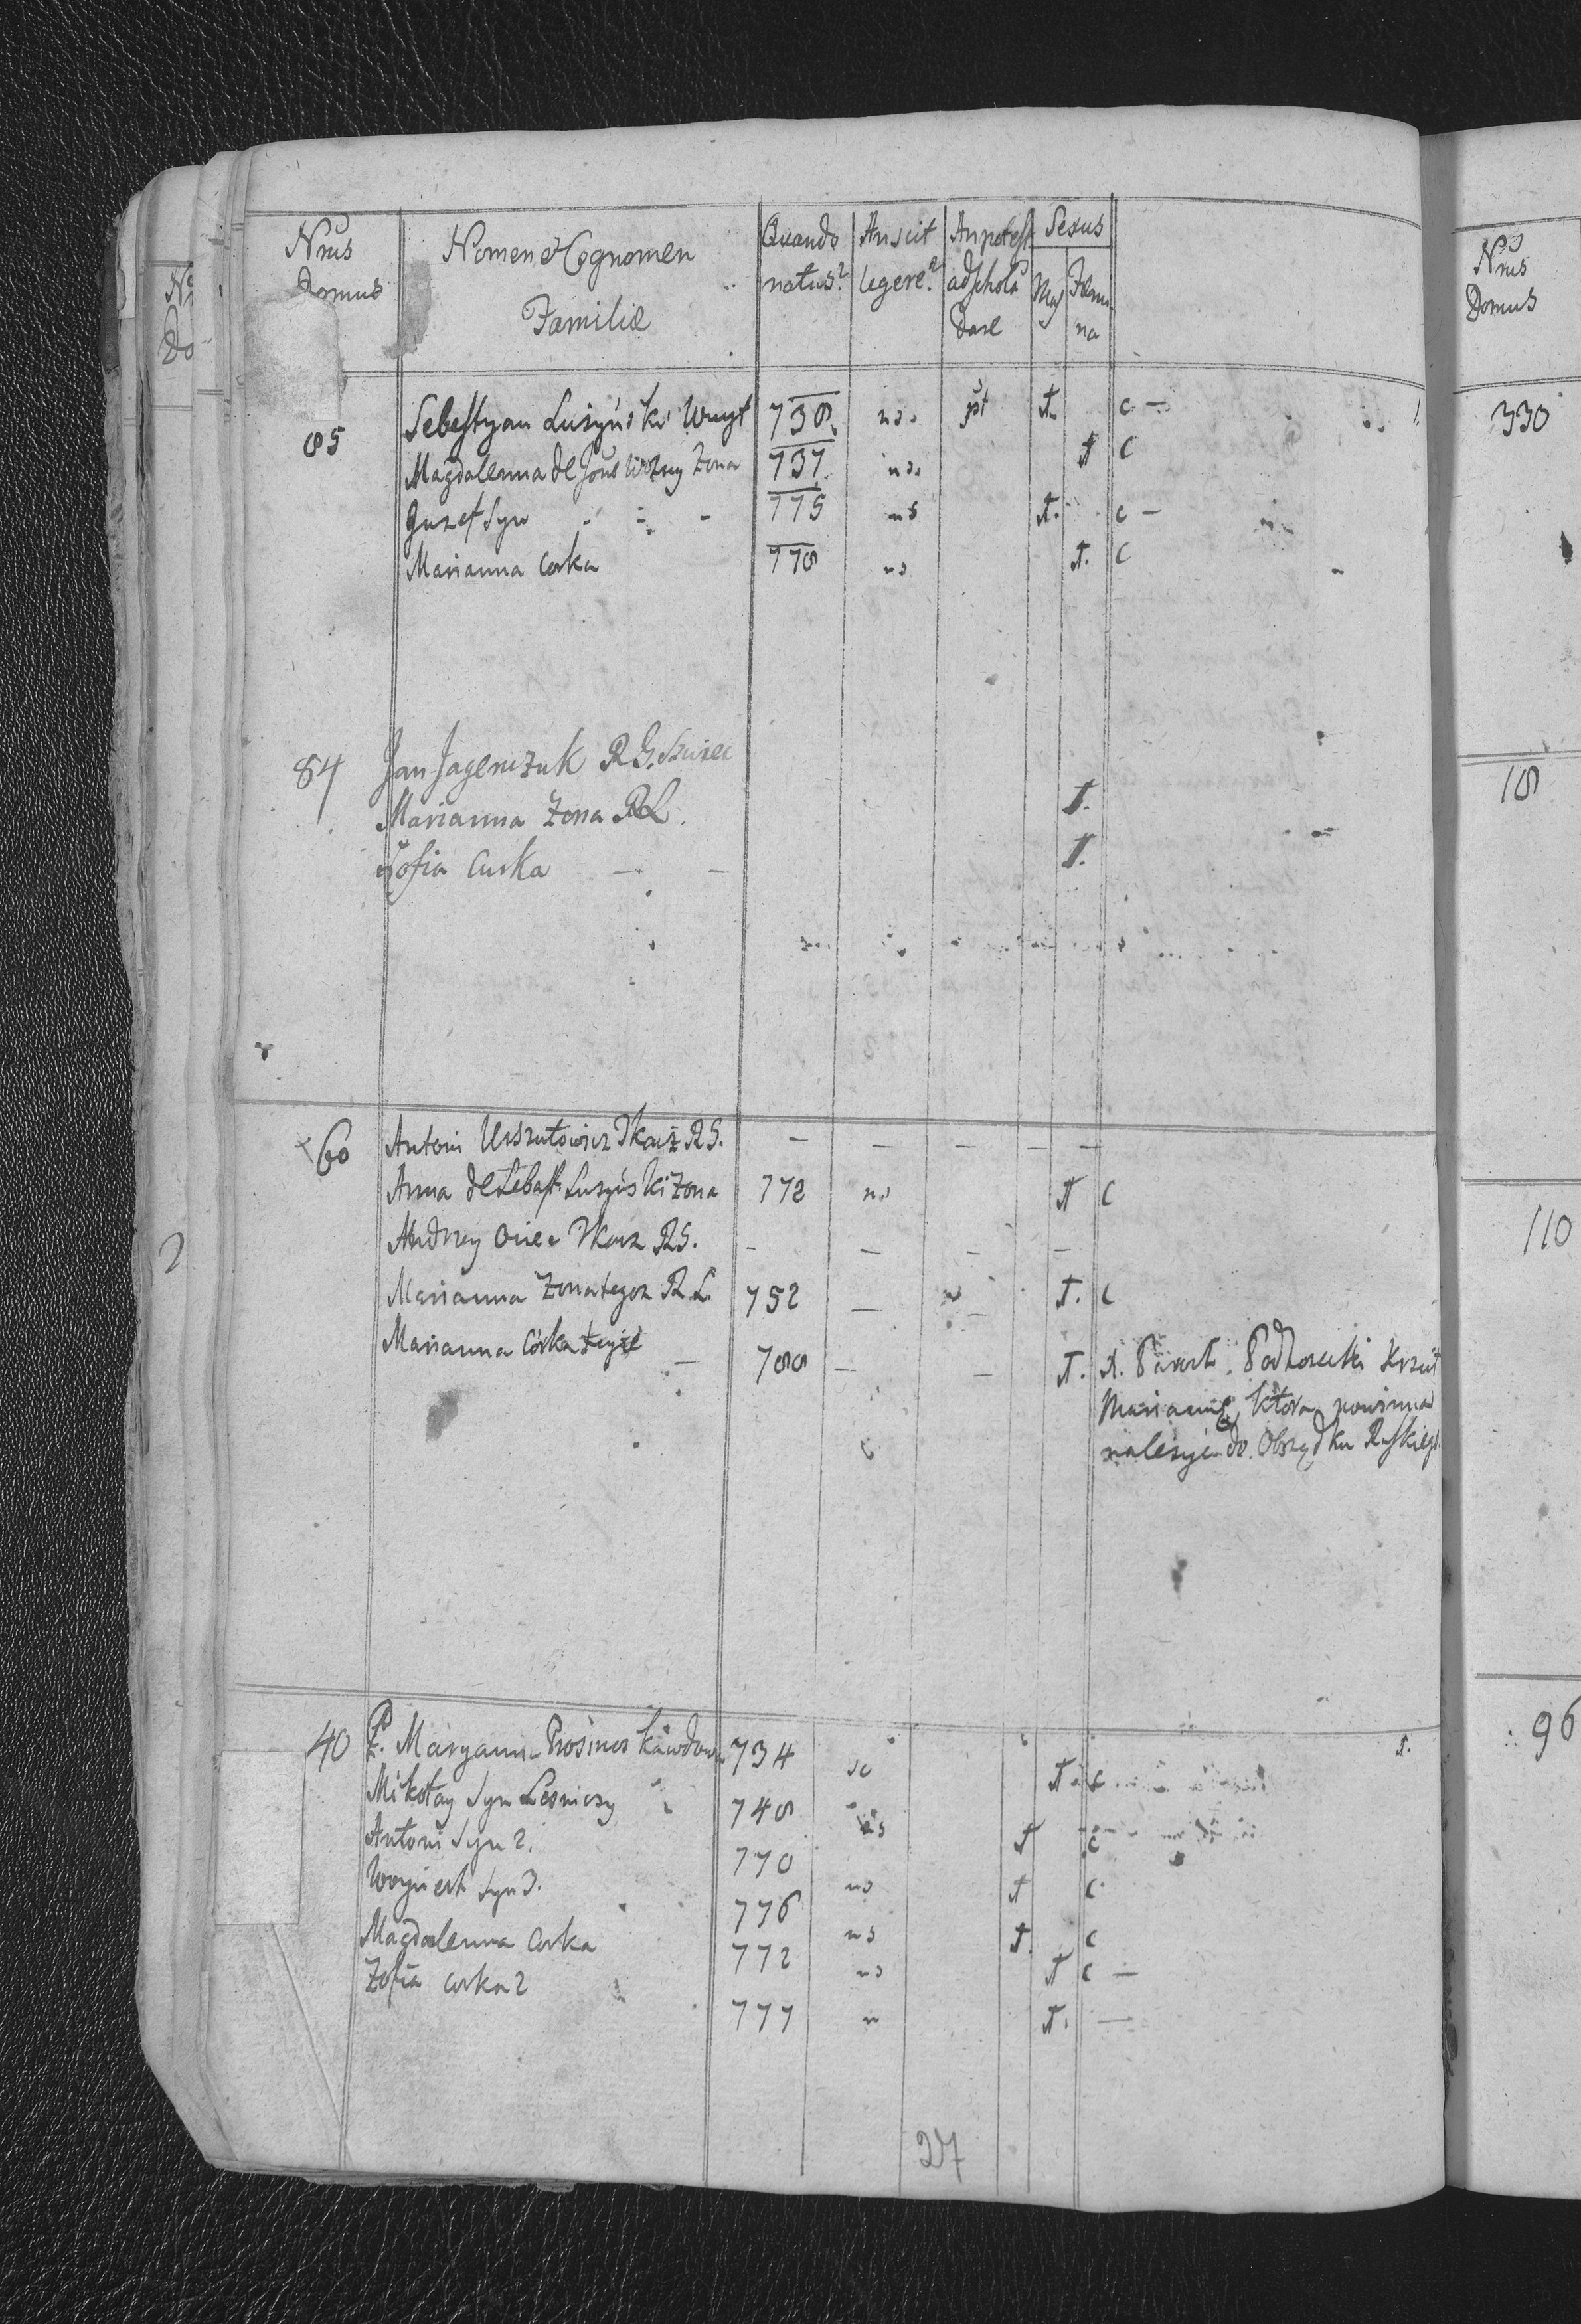 Nrus Domus | Nomen et Cognomen Familiæ | Quando natus? | An scit legere? | An potest ad schola dare | Sexus Mas Fæmina
85 Sebestyan Luszyński Wuyt 738 no pt t c –
Magdalenna de Wozny Zona 737 no t c
Juzef Syn - - - 775 no t. c –
Marianna Corka 778 no t. c
84 Jan Jagemczuk RG. Szwiec
Marianna Zona RL. t.
Zofia Curka – – t.
60 Antoni Urszulowicz Tkacz RG. – – – – –
Anna de Sebast. Luszyński Zona 772 no t c
Andrzey Tkacz RG. – – – –
Marianna Zona tegoz RL. 752 – – t. c
Marianna Córka teyże – 788 – – t.
Podhorecki krzcił
Mariannę, ktora powinna
nalezyć do Obrządku Ruskiego
40 P. Maryanna 734 sc t c t.
Mikołay Syn Lesniczy 748 ns t c
Antoni Syn 2. 770 no t c
Woyciech Syn 3. 776 no t. c
Magdalenna Corka 772 no t c –
Zofia corka 2 777 n t. –
27
Nrus
Domus
330
18
110
96